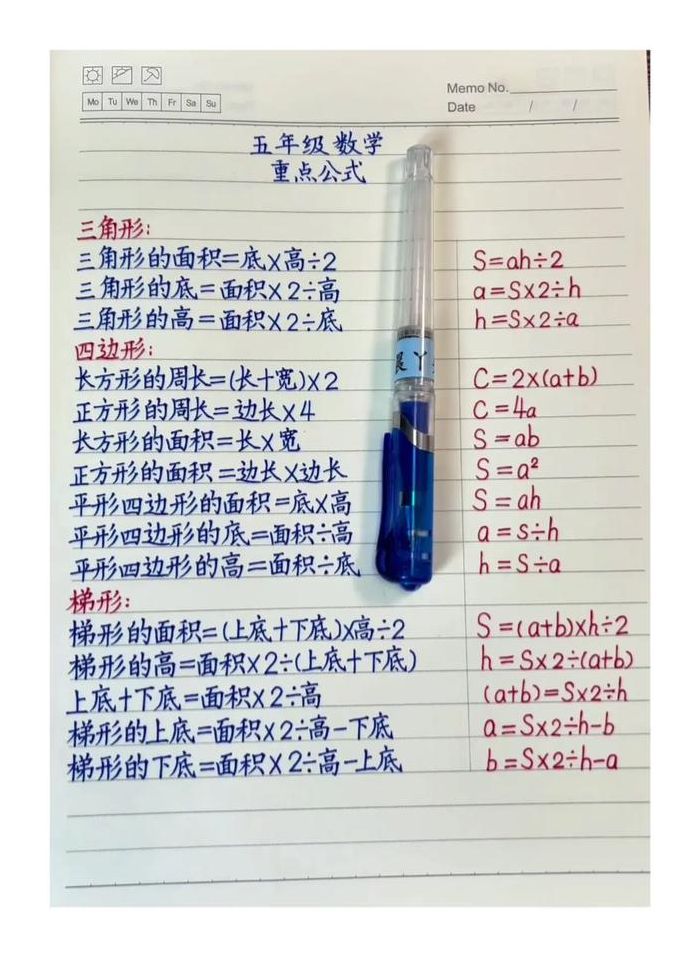 Memo No.
Mo Tu We Th Fr Sa Su
Date / /
五年级数学
重点公式
三角形:
三角形的面积=底×高÷2 S=ah÷2
三角形的底=面积×2÷高 a=S×2÷h
三角形的高=面积×2÷底 h=S×2÷a
四边形:
长方形的周长=(长+宽)×2 C=2×(a+b)
正方形的周长=边长×4 C=4a
长方形的面积=长×宽 S=ab
正方形的面积=边长×边长 S=a²
平形四边形的面积=底×高 S=ah
平形四边形的底=面积÷高 a=s÷h
平形四边形的高=面积÷底 h=S÷a
梯形:
梯形的面积=(上底+下底)×高÷2 S=(a+b)×h÷2
梯形的高=面积×2÷(上底+下底) h=S×2÷(a+b)
上底+下底=面积×2÷高 (a+b)=S×2÷h
梯形的上底=面积×2÷高-下底 a=S×2÷h-b
梯形的下底=面积×2÷高-上底 b=S×2÷h-a